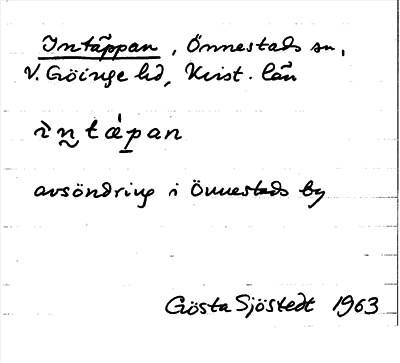 Intäppan, Önnestads sn,
V. Göinge hd, Krist. län
ìn̰tǽp̱an
avsöndring i Önnestads by
Gösta Sjöstedt 1963